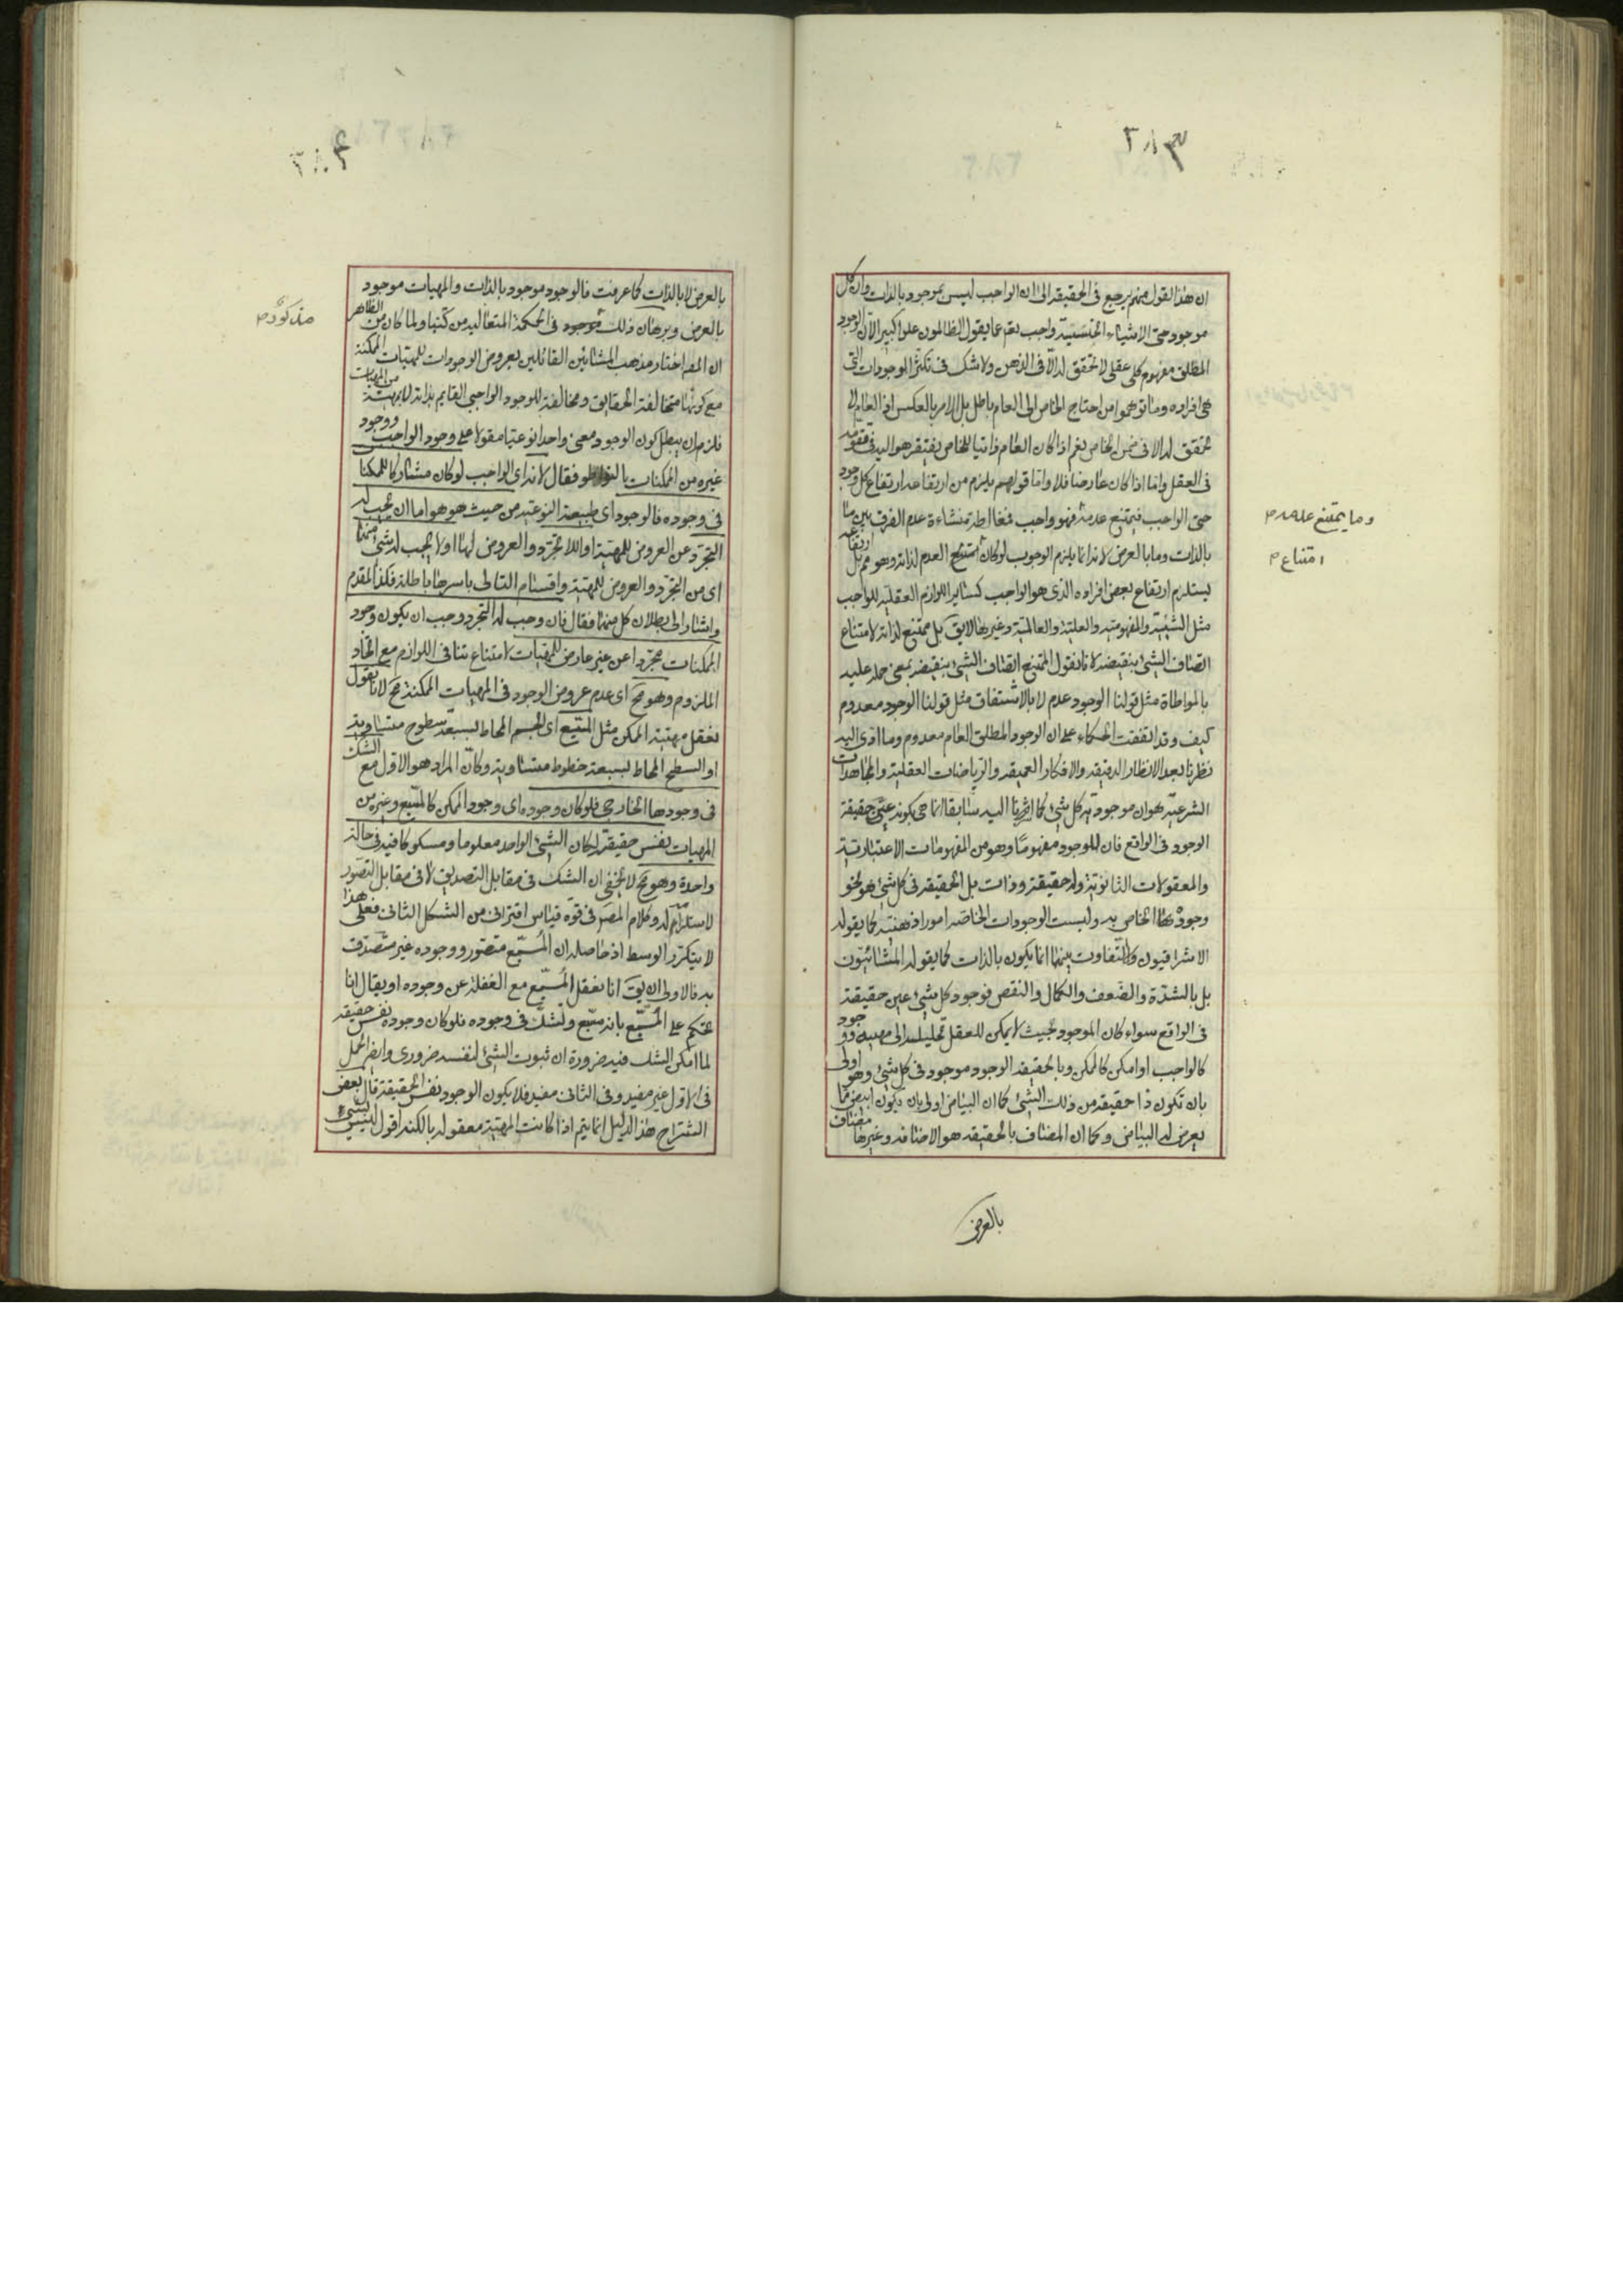 ان هذا القول منهم يرجع فى الحقيقة الى ان الواجب ليس بموجود بالذات وان كل
موجود حتى الاشياء الخسيسة واجب تعم عما يقول الظالمون علوا كبيرا لان الوجود
المطلق مفهوم كلى عقلى لا تحقق له الا فى الذهن ولا شك فى تكثر الموجودات التى
هى افراده وما توهموا من احتياج الخاص الى العام باطل بل الامر بالعكس اذ العام لا
تحقق له الا فى ضمن الخاص نعم اذا كان العام ذاتيا للخاص يفتقر هو اليه فى تقومه
فى العقل واما اذا كان عارضا فلا واما قولهم يلزم من ارتفاعه ارتفاع كل وجود
حتى الواجب فيمتنع عدمه فهو واجب فمغالطة منشاءة عدم الفرق بين ما
بالذات وما بالعرض لانه انما يلزم الوجوب لو كان امتنع العدم لذاته وهو مم بل ارتفاعه
يستلزم ارتفاع بعض افراده الذى هو الواجب كساير اللوازم العقلية للواجب
مثل الشيئية والمفهومية والعلية والعالمية وغيرها لا يق بل ممتنع لذاته لامتناع
اتصاف الشئ بنقيضه لانا نقول الممتنع اتصاف الشئ بنقيضه بمعنى حمله عليه
بالمواطاة مثل قولنا الوجود عدم لا بالاشتقاق مثل قولنا الوجود معدوم
كيف وقد اتفقت الحكماء على ان الوجود المطلق العام معدوم وما ادى اليه
نظرنا بعد الانظار الدقيقة والافكار العميقة والرياضات العقلية والمجاهدات
الشرعية هو ان موجودية كل شئ كما اشرنا اليه سابقا انما هى بكونه عين حقيقة
الوجود فى الواقع فان للوجود مفهوما وهو من المفهومات الاعتبارية
والمعقولات الثانوية وله حقيقة وذات بل الحقيقة فى كل شئ هو نحو
وجودها الخاص به وليست الوجودات الخاصة امورا ذهنية كما يقوله
الاشراقيون والتفاوت بينها انما يكون بالذات كما يقوله المشائيون
بل بالشدة والضعف والكمال والنقص فوجود كل شئ عين حقيقة
فى الواقع سواء كان الموجود بحيث لا يمكن للعقل تحليله الى مهية ووجود
كالواجب او امكن كالممكن وبالحقيقة الوجود موجود فى كل شئ وهو اولى
بان تكون ذا حقيقة من ذلك الشئ كما ان البياض اولى بان يكون ابيض مما
يعرض له البياض وكما ان المضاف بالحقيقة هو الاضافة وغيرها مضاف
بالعرض
وما يمتنع
امتناع م
بالعرض لا بالذات كما عرفت فالوجود موجود بالذات والمهيات موجود
بالعرض وبرهان ذلك موجود فى الحكمة المتعالية من كتبنا ولما كان من الظاهر
ان المصـ اختار مذهب المشائين القائلين بعروض الوجودات للمهيات الممكنة
مع كونها متخالفة الحقايق ومخالفة للوجود الواجبى القايم بذاته لا بمهية من المهيات
فلزم ان يبطل كون الوجود معنى واحدا نوعيا مقولا على وجود الواجب ووجود
غيره من الممكنات بالتواطو فقال لانه اى الواجب لو كان مشاركا للممكنا
فى وجوده فالوجود اى طبيعته النوعية من حيث هو هو اما ان يجب له
التجرد عن العروض للمهية او اللاتجرد والعروض لها او لا يجب له شئ منهما
اى من التجرد والعروض للمهية واقسام التالى باسرها باطلة فكذا المقدم
واشار الى بطلان كل منها فقال فان وجب له التجرد وجب ان يكون وجود
الممكنات مجردا عن غير عارض للمهيات لامتناع تنافى اللوازم مع اتحاد
الملزوم وهو مح اى عدم عروض الوجود فى المهيات الممكنة مح لانا نقول
نعقل مهية الممكن مثل المسبع اى الجسم المحاط بسبعة سطوح متساوية
او السطح المحاط بسبعة خطوط متساوية وكان المراد هو الاول مع الشك
فى وجودها الخارجى فلو كان وجوده اى وجود الممكن كالمسبع وغيره من
المهيات نفس حقيقته لكان الشئ الواحد معلوما ومشكوكا فيه فى حالة
واحدة وهو مح لا يخفى ان الشك فى مقابل التصديق لا فى مقابل التصور
لاستلزامه له وكلام المصـ فى قوة قياس اقترانى من الشكل الثانى فعلى هذا
لا يتكرر الوسط اذ حاصله ان المسبع متصور ووجوده غير متصدق
به فالاولى ان يق انا نعقل المسبع مع الغفلة عن وجوده او يقال انا
نحكم على المسبع بانه مسبع ونشك فى وجوده فلو كان وجوده نفس حقيقته
لما امكن الشك فيه ضرورة ان ثبوت الشئ لنفسه ضرورى وايضا الحمل
فى الاول غير مفيد وفى الثانى مفيد فلا يكون الوجود نفس الحقيقة قال بعض
الشراح هذا الدليل انما يتم اذا كانت المهية معقولة بالكنه اقول ليس بشئ
مذكورة م